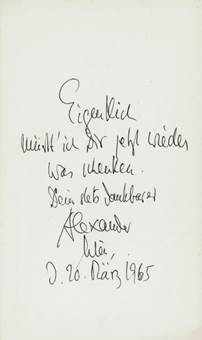 Eigentlich
müßt' ich Dir jetzt wieder
was schenken.
Dein stets dankbarer
Alexander
Wien,
D. 20. März 1965